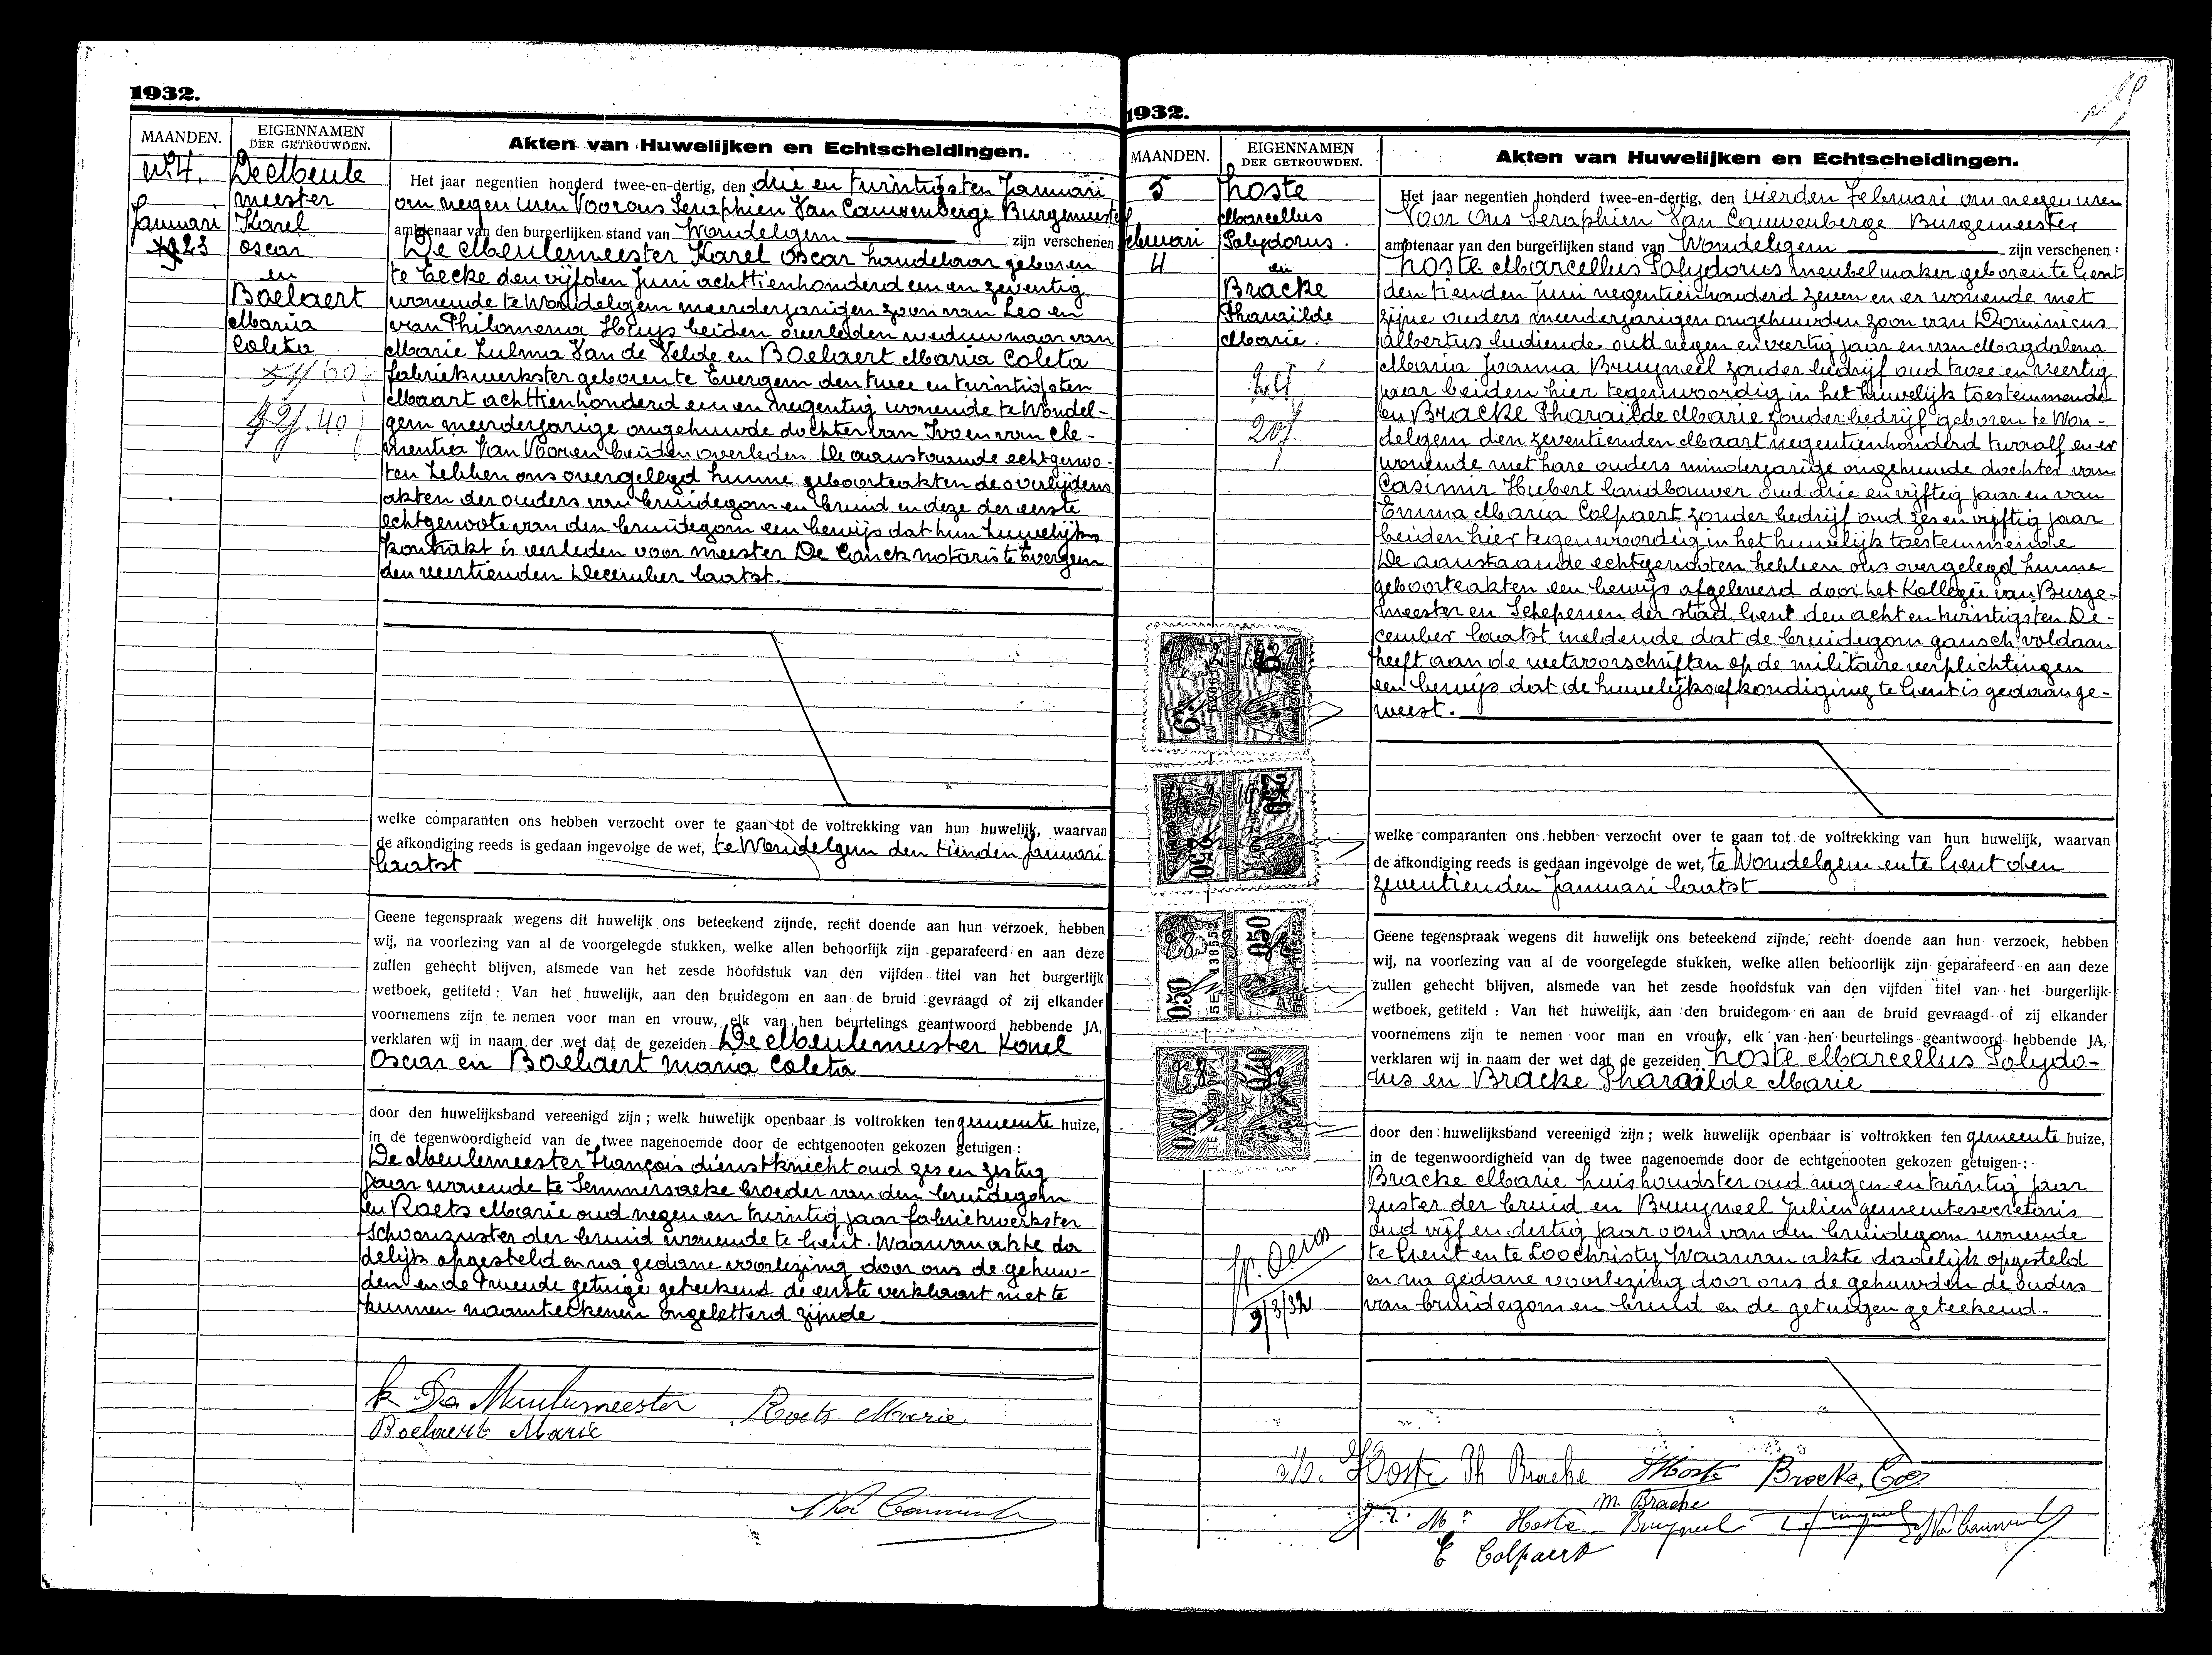 1932.
MAANDEN.
EIGENNAMEN
DER GETROUWDEN.
Akten van Huwelijken en Echtscheidingen.
N.4.
Januari
23
De Meule
meester
Karel
Oscar
en
Boelaert
Maria
Coleta
Het jaar negentien honderd twee-en-dertig, den drie en twintigsten Januari
om negen uren Voor ons Seraphien Van Cauwenberge Burgemeester
ambtenaar van den burgerlijken stand van Wondelgem zijn verschenen
De Meulemeester Karel Oscar handelaar geboren
te Eecke den vijfden Juni achttienhonderd een en zeventig
wonende te Wondelgem meerderjarigen zoon van Leo en
van Philomena Huys beiden overleden weduwnaar van
Marie Zulma Van de Velde en Boelaert Maria Coleta
fabriekwerkster geboren te Evergem den twee en twintigsten
Maart achttienhonderd een en negentig wonende te Wondel-
gem meerderjarige ongehuwde dochter van Ivo en van Cle-
mentia Van Vooren beiden overleden. De aanstaande echtgenoo-
ten hebben ons overgelegd hunne geboorteakten de overlijdens
akten der ouders van bruidegom en bruid en deze der eerste
echtgenoote van den bruidegom een bewijs dat hun huwelijks
kontrakt is verleden voor meester De Canck notaris te Evergem
den veertienden December laatst.
welke comparanten ons hebben verzocht over te gaan tot de voltrekking van hun huwelijk, waarvan
de afkondiging reeds is gedaan ingevolge de wet, te Wondelgem den tienden Januari
laatst
Geene tegenspraak wegens dit huwelijk ons beteekend zijnde, recht doende aan hun verzoek, hebben
wij, na voorlezing van al de voorgelegde stukken, welke allen behoorlijk zijn geparafeerd en aan deze
zullen gehecht blijven, alsmede van het zesde hoofdstuk van den vijfden titel van het burgerlijk
wetboek, getiteld : Van het huwelijk, aan den bruidegom en aan de bruid gevraagd of zij elkander
voornemens zijn te nemen voor man en vrouw, elk van hen beurtelings geantwoord hebbende JA,
verklaren wij in naam der wet dat de gezeiden De Meulemeester Karel
Oscar en Boelaert Maria Coleta
door den huwelijksband vereenigd zijn ; welk huwelijk openbaar is voltrokken ten gemeente huize,
in de tegenwoordigheid van de twee nagenoemde door de echtgenooten gekozen getuigen :
De Meulemeester François dienstknecht oud zes en zestig
jaar wonende te Semmersaeke broeder van den bruidegom
en Roets Marie oud negen en twintig jaar fabriekwerkster
schoonzuster der bruid wonende te Gent. Waarvan akte da
delijk opgesteld en na gedane voorlezing door ons de gehuw-
den en de tweede getuige geteekend de eerste verklaart niet te
kunnen naamteekenen ongeletterd zijnde
K De Meulemeester Roets Marie
Boelaert Marie
1932.
MAANDEN.
EIGENNAMEN
DER GETROUWDEN.
Akten van Huwelijken en Echtscheidingen.
5
Februari
4
Hoste
Marcellus
Polydorus.
en
Bracke
Pharaïlde
Marie.
Het jaar negentien honderd twee-en-dertig, den vierden Februari om negen uren
Voor Ons Seraphien Van Cauwenberge Burgemeester
ambtenaar van den burgerlijken stand van Wondelgem zijn verschenen :
Hoste Marcellus Polydorus meubelmaker geboren te Gent
den tienden Juni negentienhonderd zeven en er wonende met
zijne ouders meerderjarigen ongehuwden zoon van Dominicus
Albertus bediende oud negen en veertig jaar en van Magdalena
Maria Joanna Bruyneel zonder bedrijf oud twee en veertig
jaar beiden hier tegenwoordig in het huwelijk toestemmende
en Bracke Pharaïlde Marie zonder bedrijf geboren te Won-
delgem den zeventienden Maart negentienhonderd twaalf en er
wonende met hare ouders minderjarige ongehuwde dochter van
Casimir Hubert landbouwer oud drie en vijftig jaar en van
Emma Maria Colpaert zonder bedrijf oud zes en vijftig jaar
beiden hier tegenwoordig in het huwelijk toestemmende
De aanstaande echtgenooten hebben ons overgelegd hunne
geboorteakten een bewijs afgeleverd door het Kollegie van Burge-
meester en Schepenen der stad Gent den acht en twintigsten De-
cember laatst meldende dat de bruidegom gansch voldaan
heeft aan de wetsvoorschriften op de militaire verplichtingen
een bewijs dat de huwelijksafkondiging te Gent is gedaan ge-
weest.
welke comparanten ons hebben verzocht over te gaan tot de voltrekking van hun huwelijk, waarvan
de afkondiging reeds is gedaan ingevolge de wet, te Wondelgem en te Gent den
zeventienden Januari laatst
Geene tegenspraak wegens dit huwelijk ons beteekend zijnde, recht doende aan hun verzoek, hebben
wij, na voorlezing van al de voorgelegde stukken, welke allen behoorlijk zijn geparafeerd en aan deze
zullen gehecht blijven, alsmede van het zesde hoofdstuk van den vijfden titel van het burgerlijk
wetboek, getiteld : Van het huwelijk, aan den bruidegom en aan de bruid gevraagd of zij elkander
voornemens zijn te nemen voor man en vrouw, elk van hen beurtelings geantwoord hebbende JA,
verklaren wij in naam der wet dat de gezeiden Hoste Marcellus Polydo-
rus en Bracke Pharaïlde Marie
door den huwelijksband vereenigd zijn ; welk huwelijk openbaar is voltrokken ten gemeente huize,
in de tegenwoordigheid van de twee nagenoemde door de echtgenooten gekozen getuigen :
Bracke Marie huishoudster oud negen en twintig jaar
zuster der bruid en Bruyneel Julien gemeentesecretaris
oud vijf en dertig jaar oom van den bruidegom wonende
te Gent en te Loochristy Waarvan akte dadelijk opgesteld
en na gedane voorlezing door ons de gehuwden de ouders
van bruidegom en bruid en de getuigen geteekend.
9/3/32
Hoste Th Bracke Hoste Bracke, Cas
M. Bracke
Hoste Bruyneel
E Colpaert